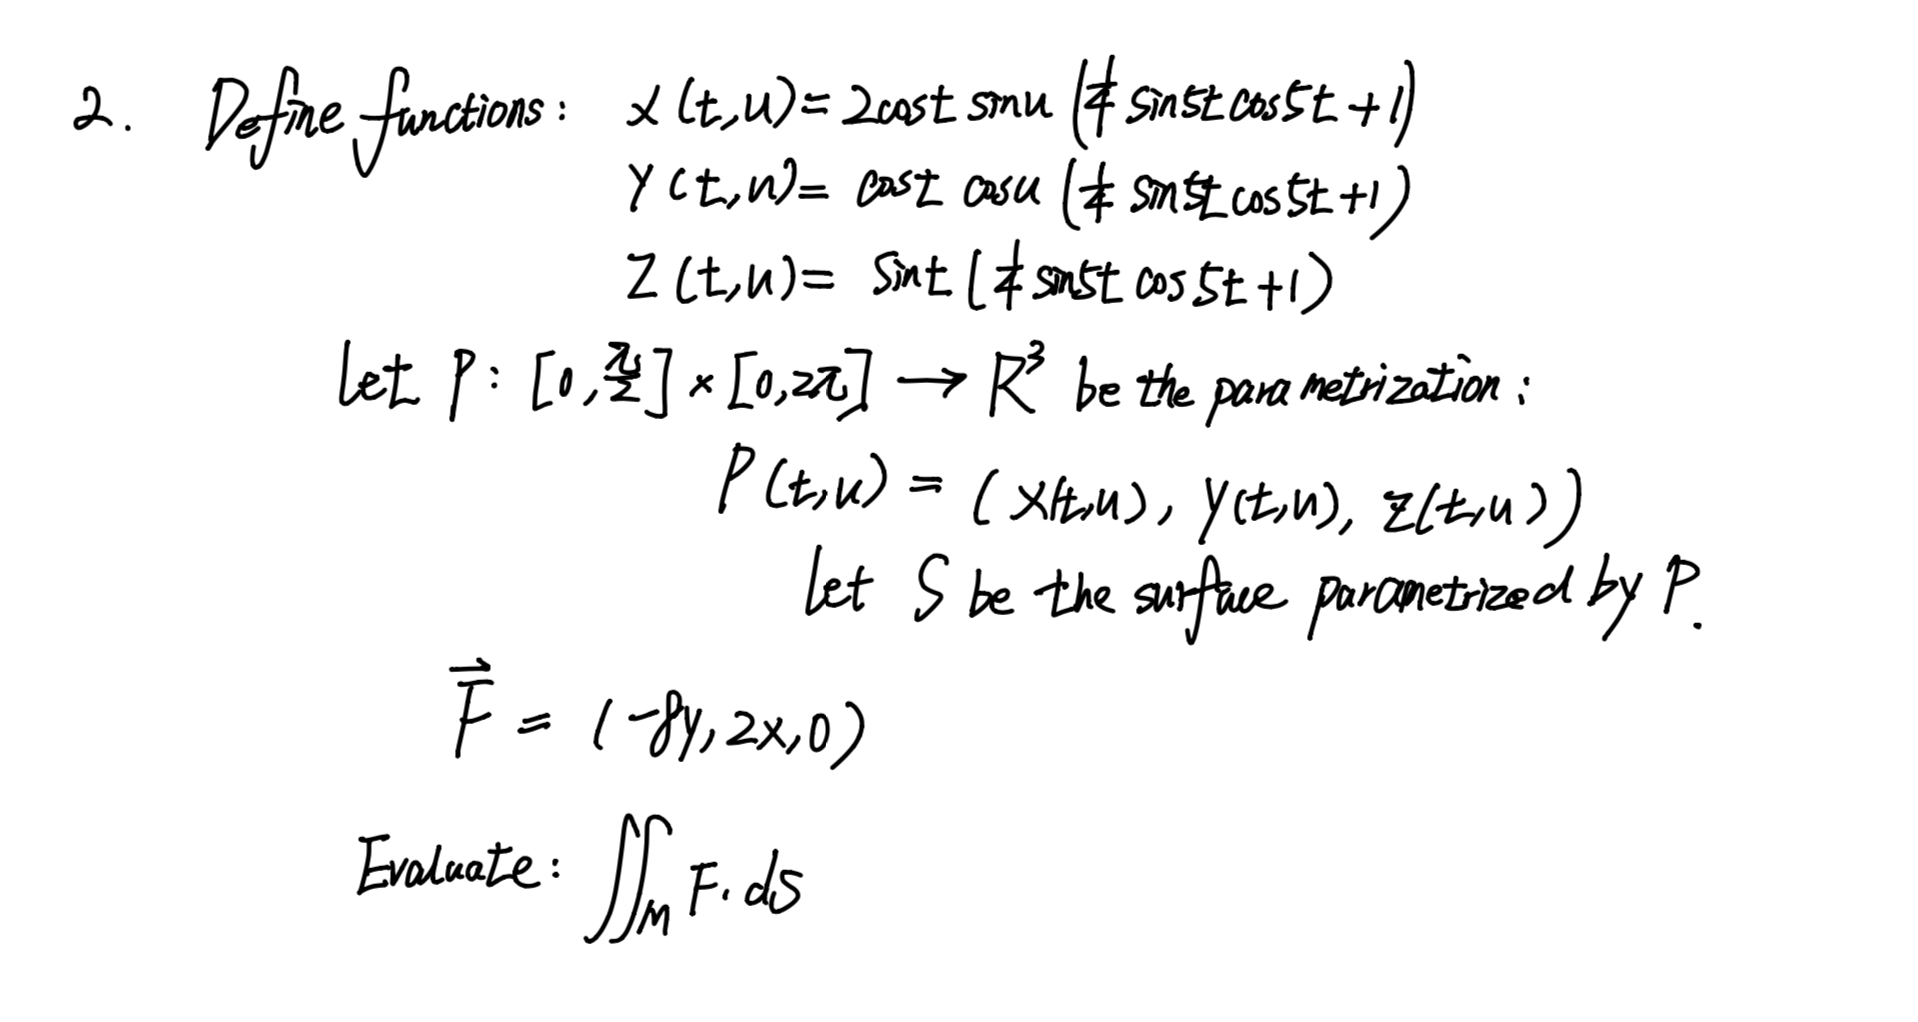 2. Define functions: X(t,u)= 2cost sinu (1/4 sin5t cos5t +1)
Y(t,u)= cost cosu (1/4 sin5t cos5t +1)
Z(t,u)= Sint (1/4 sin5t cos5t +1)
let P: [0, π/2] × [0,2π] → R³ be the parametrization:
P(t,u) = (X(t,u), Y(t,u), Z(t,u))
let S be the surface parametrized by P.
F⃗ = (-8y, 2x, 0)
Evaluate: ∬_M F. dS